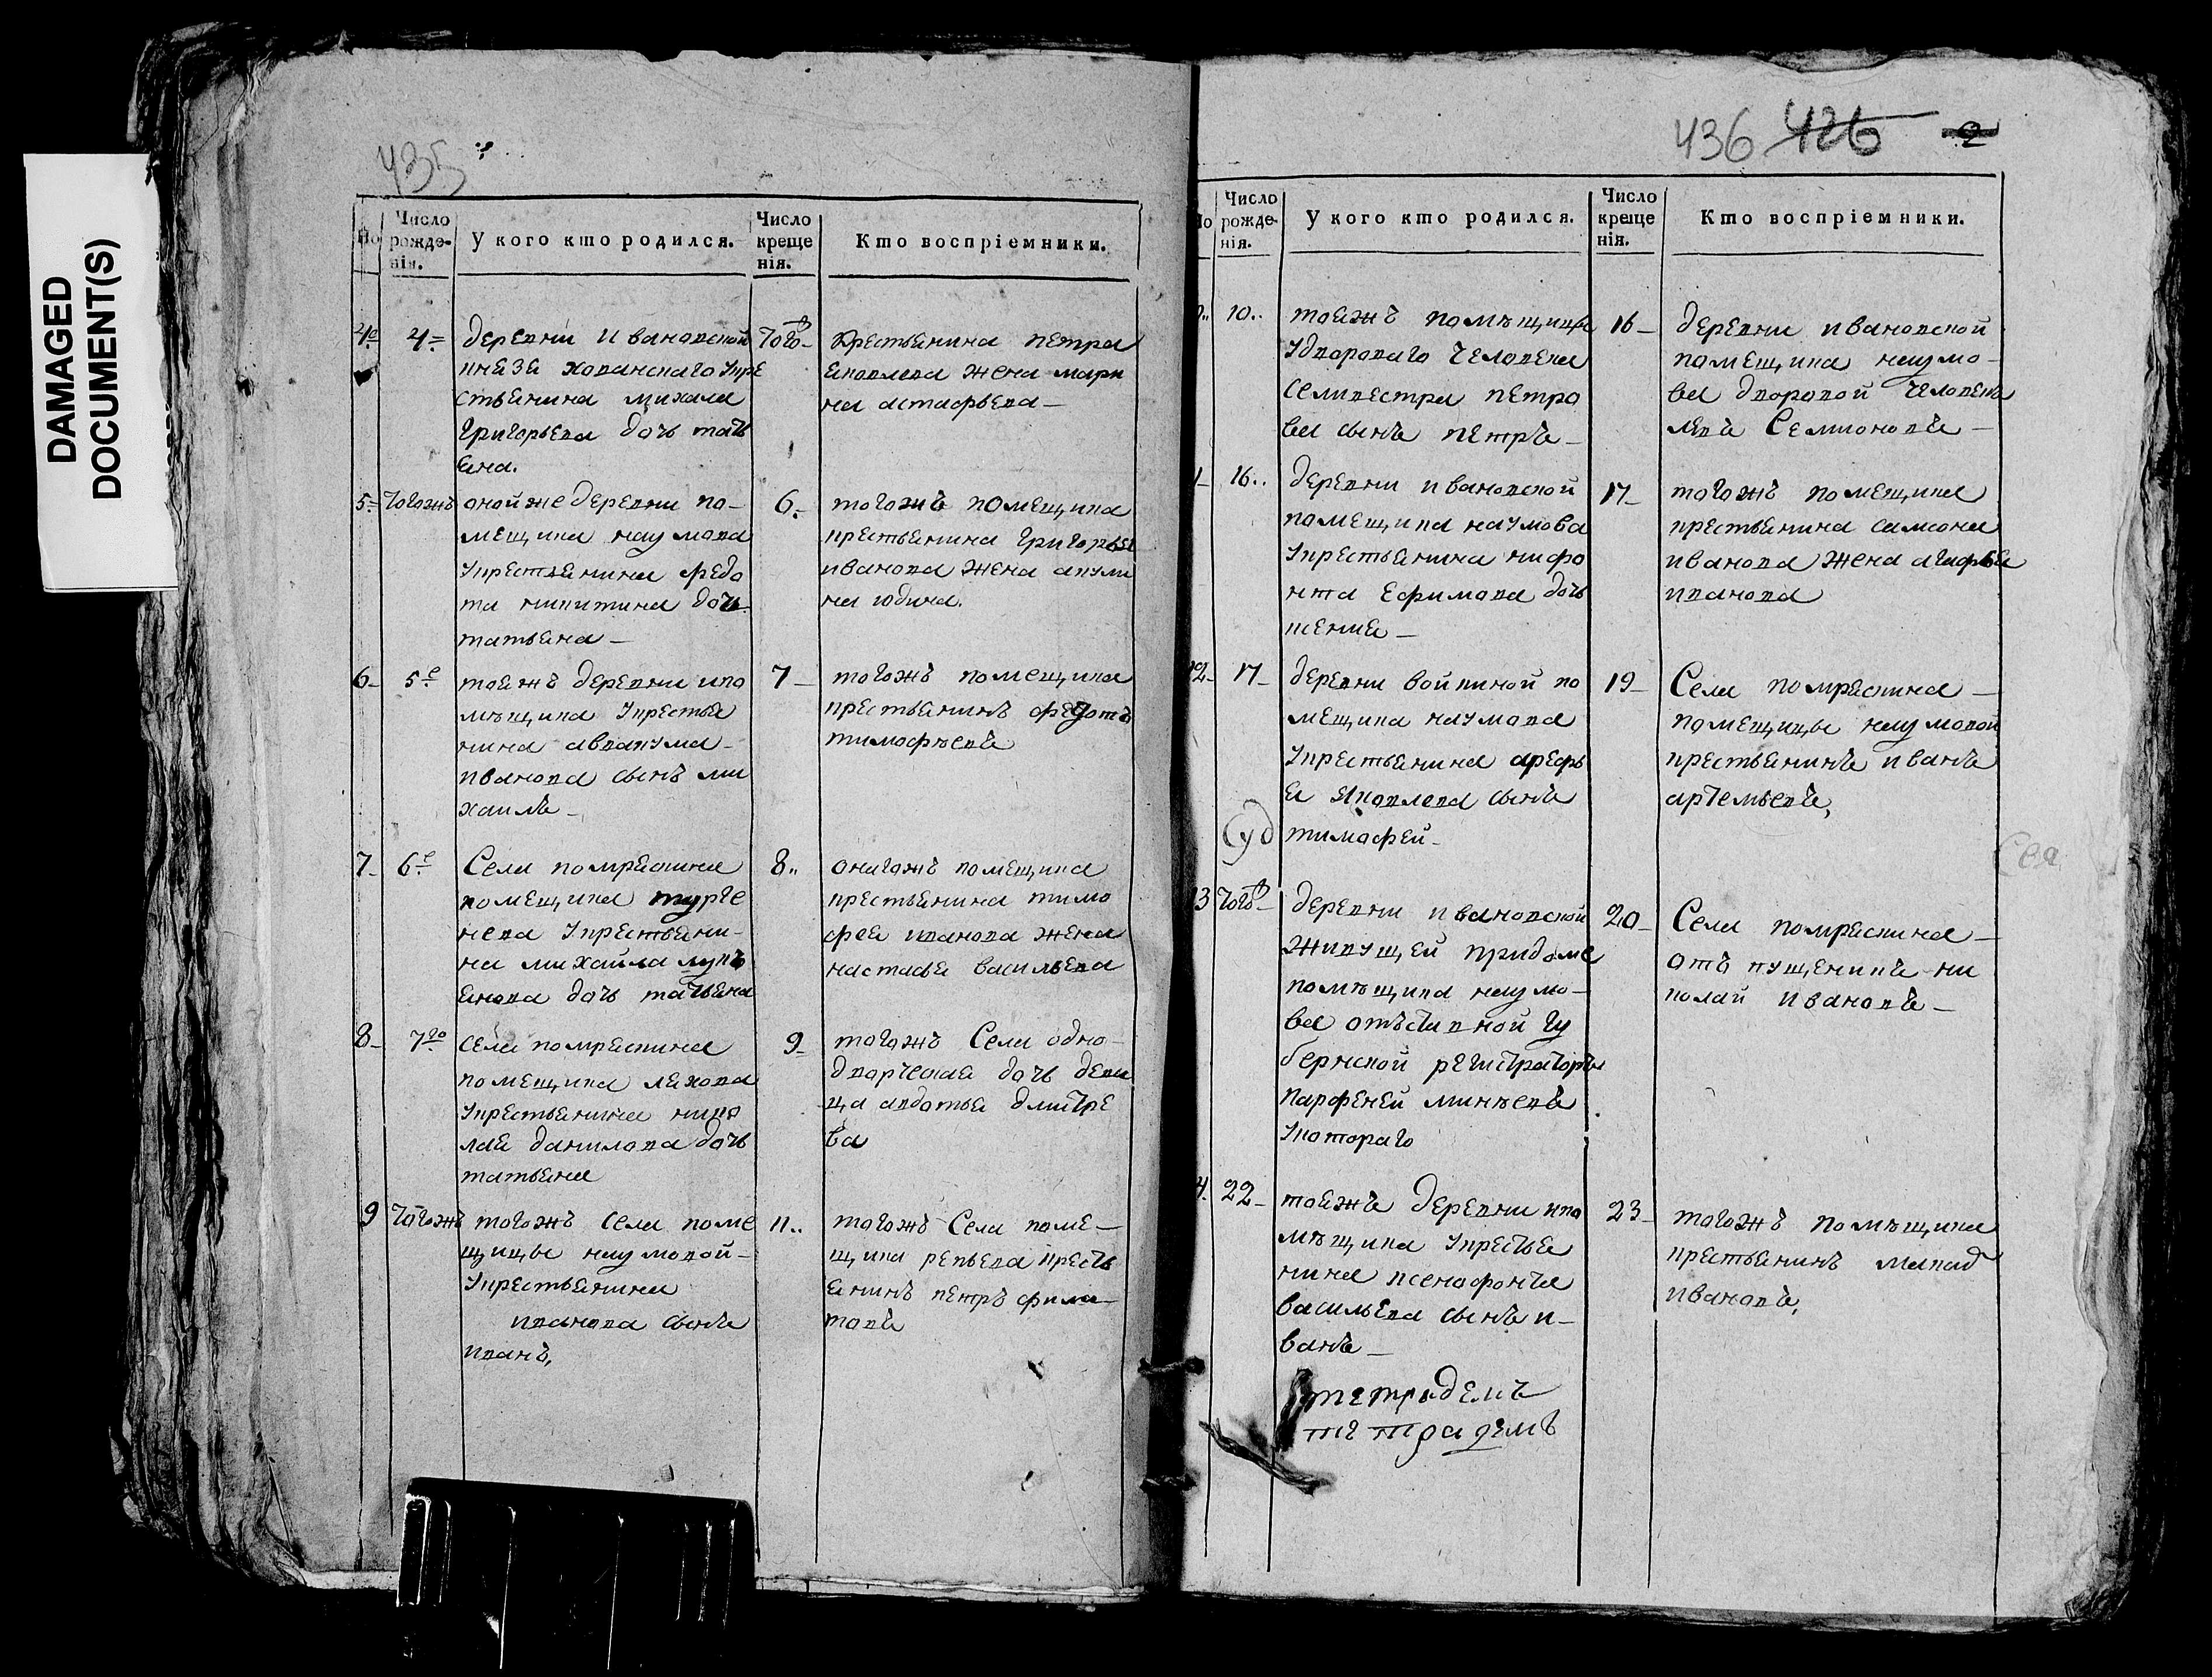 DAMAGED
DOCUMENT(S)
435
По
Число рожде-нія.
У кого кто родился.
Число креще нія.
Кто воспріемники.
4е 4=
деревни Ивановской
князя хованскаго укре
стьянина михала
григорьева дочь тать
яна.
Того
крестьянина петра
яковлева жена мари
на астафьева
5= Тогожъ
оной же деревни по-
мещика наумова
укрестьянина федо
та никитина дочь
татьяна
6.
тогожъ помещика
крестьянина григорья
иванова жена акули
на юдина.
6 5е
тоежъ деревни ипо
мѣщика укрестья
нина аввакума
иванова сынъ ми
хаилъ
7
тогожъ помещика
крестьянинъ федотъ
тимофѣевъ
7 6е
Села покряскина
помещика турге
нева укрестьяни-
на михайла лукь
янова дочь татьяна
8
онагожъ помещика
крестьянина тимо
фея иванова жена
настасья васильева
8 7го
села покряскина
помещика ляхова
укрестьянина нико
лая данилова дочь
татьяна
9
тогожъ Села одно-
дворческая дочь деви
ца авдотья дмитре
ва
9 Тогожъ
тогожъ села поме
щицы наумовой
укрестьянина
иванова сынъ
иванъ,
11
тогожъ Села поме
щика репьева кресть
янинъ петръ фила
товъ
436 426 2
По
Число рожде-нія.
У кого кто родился.
Число креще нія.
Кто воспріемники.
10
тоежъ помѣщицы
удвороваго человека
селивестра петро
ва сынъ петръ
16
деревни ивановской
помещика наумо-
ва дворовой человекъ
левъ Семионовъ
16
деревни ивановской
помещика наумова
укрестьянина нифо
нта ефимова дочь
ксения
17
тогожъ помещика
крестьянина самсона
иванова жена агафья
иванова
2 17
деревни войкиной по
мещика наумова
укрестьянина арефь
я яковлева сынъ
тимофей
19
Села покряскина
помещицы наумовой
крестьянинъ иванъ
артемьевъ,
3 Того
деревни ивановской
живущей придоме
помѣщика наумо-
ва отъставной гу
бернской регистраторъ
парфеней минѣевъ
укотораго
20
Села покряскина
отъпущеникъ ни
колай ивановъ
4. 22
тоежъ деревни ипо
мѣщика укрестья
нина ксенофонта
васильева сынъ и-
ванъ
23
тогожъ помѣщика
крестьянинъ
ивановъ,
тетрадемъ
тетрадемъ